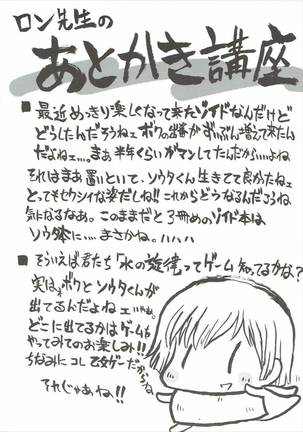 ロン先生の
あとがき講座
■最近めっきり楽しくなって来たゾイドなんだけど
どうしたんだろうねェ ボクの出番がずいぶん増えて来たん
だよねェ…。まぁ半年くらいガマンしてたんだから……よね
それはまぁ置いといて、ソウタくん生きてて良かたねェ
とってもセクシィな姿だしね!!これからどうなるんだろうね
気になるなあ。このままだと3冊めのゾイド本は
ソウ本に…。まさかね。ハハハ
■そういえば君たち「水の旋律」ってゲーム知ってるかな?
実はボクとソウタくんが
出てるんだよねェ!!!
どこに出てるかはゲームを
やってみてのお楽しみ!!
ちなみにコレ乙女ゲーだからね
それじゃあね!!